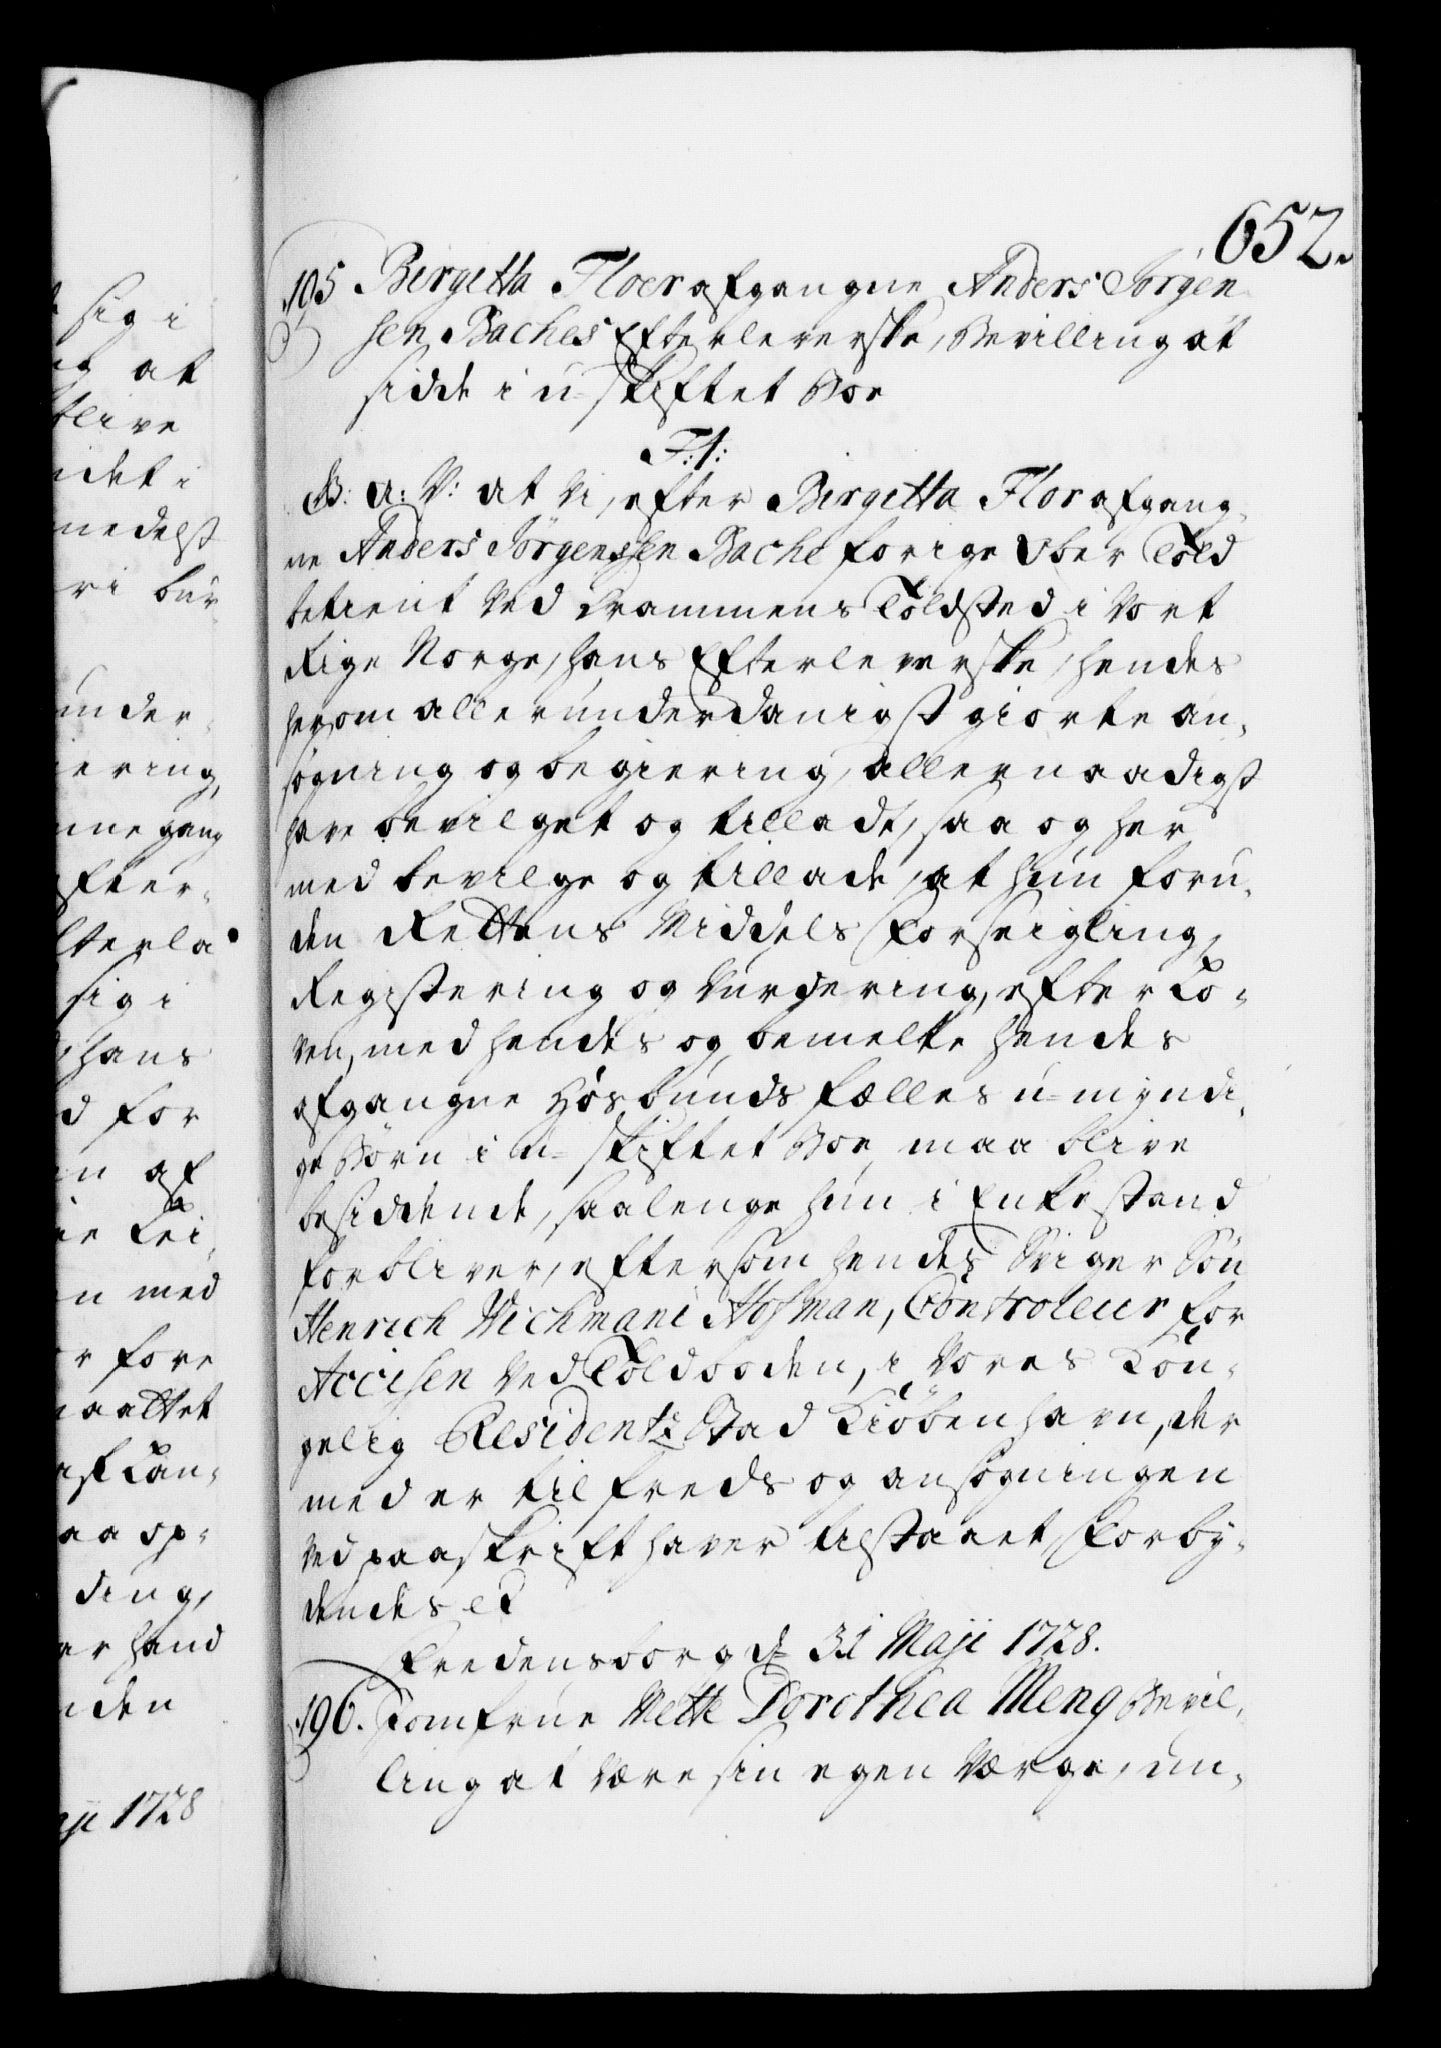 652.
195 Birgitta Floer afgangne Anders Jörgen
sen Baches Efterleverske, Bevilling at
sidde i u-skiftet Boe
F: 4:
G: a: V: at Vi, efter Birgitta Flor afgang-
ne Anders Jörgensen Bache forige Ober Told
betient ved Drammens Toldsted i Vort
Rige Norge, hans Efterleverske, hendes
herom allerunderdanigst giorte an-
søgning og begiering, allernaadigst
have bevilget og tilladt, saa og her
med bevilge og tillade, at hun foru-
den Rettens Middels Forseigling,
Registering og Vurdering, efter Lo-
ven, med hendes og bemelte hendes
afgangne Hosbunds fælles u-myndi-
ge Börn i u-skiftet Boe maa blive
besiddende, saalenge hun i Enkestand
forbliver, eftersom hendes Sviger Sön
Henrich Wichmand Hofman, Controleur for
Accisen ved Toldboden, i Vores Kon-
gelig Residentz Stad Kiöbenhavn, der
med er tilfreds og ansøgningen
ved paaskrift haver tilstaaet, Forby-
dendes et
Fredensborg d. 31 Maji 1728.
196. Jomfrue Mette Dorothea Meng Bevil-
ling at være sin egen Værge, un-
sig i
at
blive
idet i
medelst
ri bur
under-
iering,
ane gang
fter-
lterla
sig i
hans
d for
n af
med
r fore
aattet
af Lan-
aa op-
ding,
er haand
iden
aji 1728